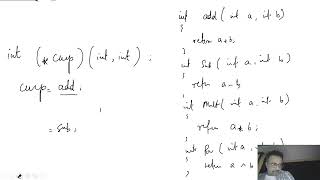 int (*cmp)(int, int) ;
cmp = add ;
;
= Sub ;
int add ( int a , int b )
{
return a+b ;
}
int Sub ( int a , int b )
{
return a - b ;
}
int Mult ( int a , int b )
{
return a * b ;
}
int ( int a ,
{
return a ^ b